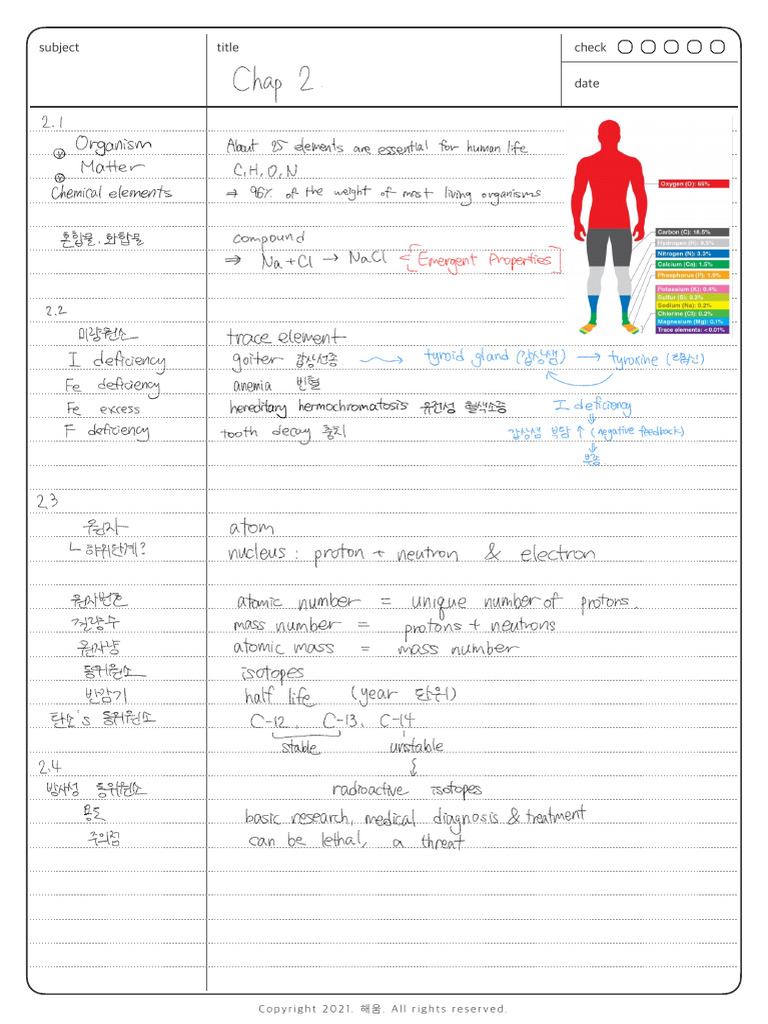 subject title check
Chap 2.
date
2.1
Organism About 25 elements are essential for human life
Matter C, H, O, N
Chemical elements ⇒ 96% of the weight of most living organisms
혼합물, 화합물 compound
⇒ Na + Cl → NaCl < [Emergent Properties]
Oxygen (O): 65%
Carbon (C): 18.5%
Hydrogen (H): 9.5%
Nitrogen (N): 3.3%
Calcium (Ca): 1.5%
Phosphorus (P): 1.0%
Potassium (K): 0.4%
Sulfur (S): 0.3%
Sodium (Na): 0.2%
Chlorine (Cl): 0.2%
Magnesium (Mg): 0.1%
Trace elements: < 0.01%
2.2
미량원소 trace element
I deficiency goiter 갑상선종 → tyroid gland (갑상샘) → tyroxine
Fe deficiency anemia 빈혈
Fe excess hereditary hermochromatosis 유전성 혈색소증 I deficiency
F deficiency tooth decay 충치 갑상샘 부담 ↑ (negative feedback)
부종
2.3
원자 atom
ㄴ 하위단계? nucleus : proton + neutron & electron
원자번호 atomic number = unique number of protons.
질량수 mass number = protons + neutrons
원자량 atomic mass = mass number
동위원소 isotopes
반감기 half life (year 단위)
탄소's 동위원소 C-12, C-13, C-14
stable unstable
2.4
방사성 동위원소 radioactive isotopes
용도 basic research, medical diagnosis & treatment
주의점 can be lethal, a threat
Copyright 2021. 해움. All rights reserved.